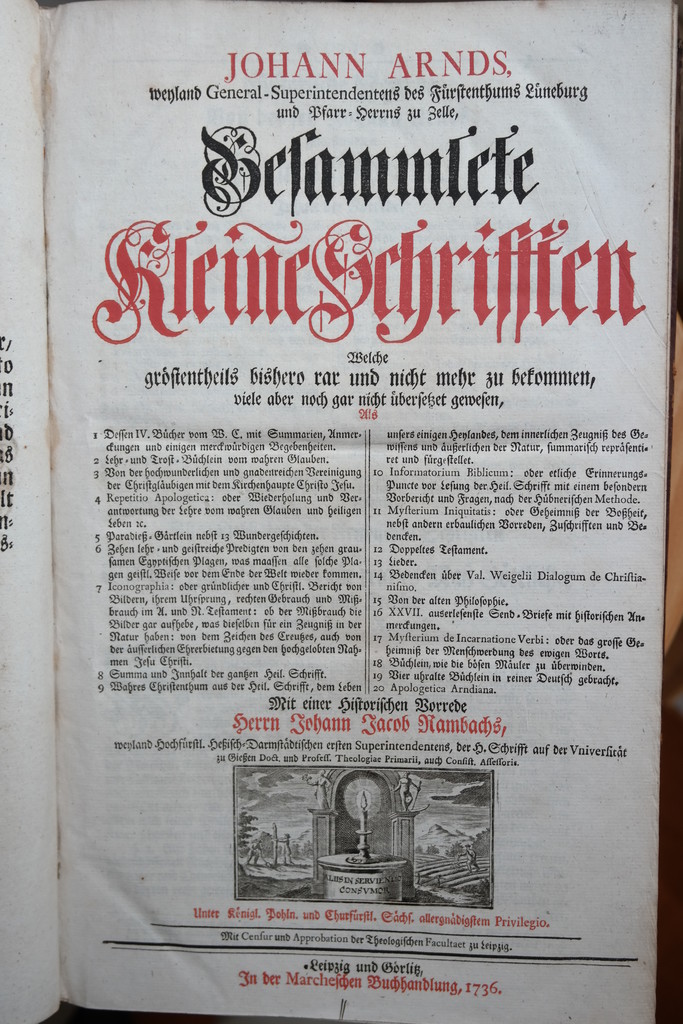 JOHANN ARNDS,
weyland General-Superintendentens des Fürstenthums Lüneburg
und Pfarr-Herrns zu Zelle,
Gesammlete
Kleine Schrifften
Welche
gröstentheils bishero rar und nicht mehr zu bekommen,
viele aber noch gar nicht übersetzet gewesen,
Als
1 Dessen IV. Bücher vom W. C. mit Summarien, Anmer-
ckungen und einigen merckwürdigen Begebenheiten.
2 Lehr- und Trost-Büchlein vom wahren Glauben.
3 Von der hochwunderlichen und gnadenreichen Vereinigung
der Christgläubigen mit dem Kirchenhaupte Christo Jesu.
4 Repetitio Apologetica: oder Wiederholung und Ver-
antwortung der Lehre vom wahren Glauben und heiligen
Leben ꝛc.
5 Paradieß-Gärtlein nebst 13 Wundergeschichten.
6 Zehen lehr- und geistreiche Predigten von den zehen grau-
samen Egyptischen Plagen, was maassen alle solche Pla-
gen geistl. Weise vor dem Ende der Welt wieder kommen.
7 Iconographia: oder gründlicher und Christl. Bericht von
Bildern, ihrem Uhrsprung, rechten Gebrauch und Miß-
brauch im A. und N. Testament: ob der Mißbrauch die
Bilder gar aufhebe, was dieselben für ein Zeugniß in der
Natur haben: von dem Zeichen des Creutzes, auch von
der äusserlichen Ehrerbietung gegen den hochgelobten Nah-
men Jesu Christi.
8 Summa und Innhalt der gantzen Heil. Schrifft.
9 Wahres Christenthum aus der Heil. Schrifft, dem Leben
unsers einigen Heylandes, dem innerlichen Zeugniß des Ge-
wissen und äußerlichen der Natur, summarisch repräsenti-
ret und fürgestellet.
10 Informatorium Biblicum: oder etliche Erinnerungs-
Puncte vor Lesung der Heil. Schrifft mit einem besondern
Vorbericht und Fragen, nach der Hübnerischen Methode.
11 Mysterium Iniquitatis: oder Geheimniß der Boßheit,
nebst andern erbaulichen Vorreden, Zuschrifften und Be-
dencken.
12 Doppeltes Testament.
13 Lieder.
14 Bedencken über Val. Weigelii Dialogum de Christia-
nismo.
15 Von der alten Philosophie.
16 XXVII. auserlesenste Send-Briefe mit historischen An-
merckungen.
17 Mysterium de Incarnatione Verbi: oder das grosse Ge-
heimniß der Menschwerdung des ewigen Worts.
18 Büchlein, wie die bösen Mäuler zu überwinden.
19 Vier uhralte Büchlein in reiner Deutsch gebracht.
20 Apologetica Arndiana.
Mit einer Historischen Vorrede
Herrn Johann Jacob Rambachs,
weyland Hochfürstl. Heßisch-Darmstädtischen ersten Superintendentens, der H. Schrifft auf der Vniversität
zu Gießen Doct. und Profess. Theologiae Primarii, auch Consist. Assessoris.
ALIIS IN SERVIENDO
CONSVMOR
Unter Königl. Pohln. und Churfürstl. Sächs. allergnädigstem Privilegio.
Mit Censur und Approbation der Theologischen Facultaet zu Leipzig.
Leipzig und Görlitz,
In der Marcheschen Buchhandlung, 1736.